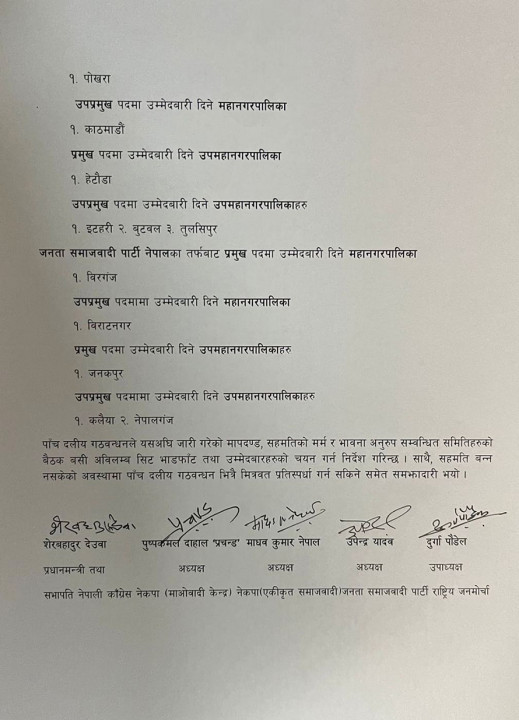 १. पोखरा
उपप्रमुख पदमा उम्मेदबारी दिने महानगरपालिका
१. काठमाडौं
प्रमुख पदमा उम्मेदबारी दिने उपमहानगरपालिका
१. हेटौडा
उपप्रमुख पदमा उम्मेदबारी दिने उपमहानगरपालिकाहरु
१. इटहरी २. बुटवल ३. तुलसिपुर
जनता समाजवादी पार्टी नेपालका तर्फबाट प्रमुख पदमा उम्मेदबारी दिने महानगरपालिका
१. विरगंज
उपप्रमुख पदमामा उम्मेदबारी दिने महानगरपालिका
१. विराटनगर
प्रमुख पदमा उम्मेदबारी दिने उपमहानगरपालिकाहरु
१. जनकपुर
उपप्रमुख पदमामा उम्मेदबारी दिने उपमहानगरपालिकाहरु
१. कलैया २. नेपालगंज
पाँच दलीय गठवन्धनले यसअघि जारी गरेको मापदण्ड, सहमतिको मर्म र भावना अनुरुप सम्वन्धित समितिहरुको
बैठक बसी अबिलम्ब सिट भाडफाँट तथा उम्मेदवारहरुको चयन गर्न निर्देश गरिन्छ । साथै, सहमति बन्न
नसकेको अवस्थामा पाँच दलीय गठवन्धन भित्रै मित्रवत प्रतिस्पर्धा गर्न सकिने समेत समझदारी भयो ।
शेरबहादुर देउवा पुष्पकमल दाहाल 'प्रचन्ड' माधव कुमार नेपाल उपेन्द्र यादव दुर्गा पौडेल
प्रधानमन्त्री तथा अध्यक्ष अध्यक्ष अध्यक्ष उपाध्यक्ष
सभापति नेपाली काँग्रेस नेकपा (माओवादी केन्द्र) नेकपा(एकीकृत समाजवादी)जनता समाजवादी पार्टी राष्ट्रिय जनमोर्चा